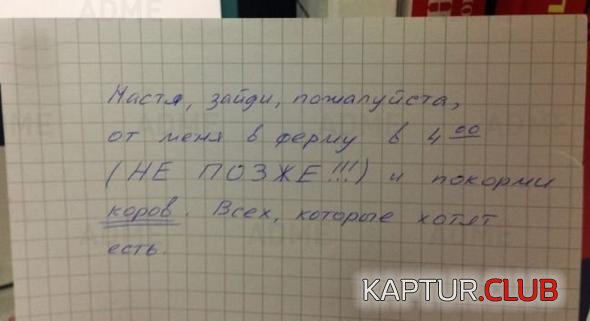 ADME
Настя, зайди, пожалуйста,
от меня в ферму в 4 00
(НЕ ПОЗЖЕ!!!) и покорми
коров. Всех, которые хотят
есть.
KAPTUR.CLUB